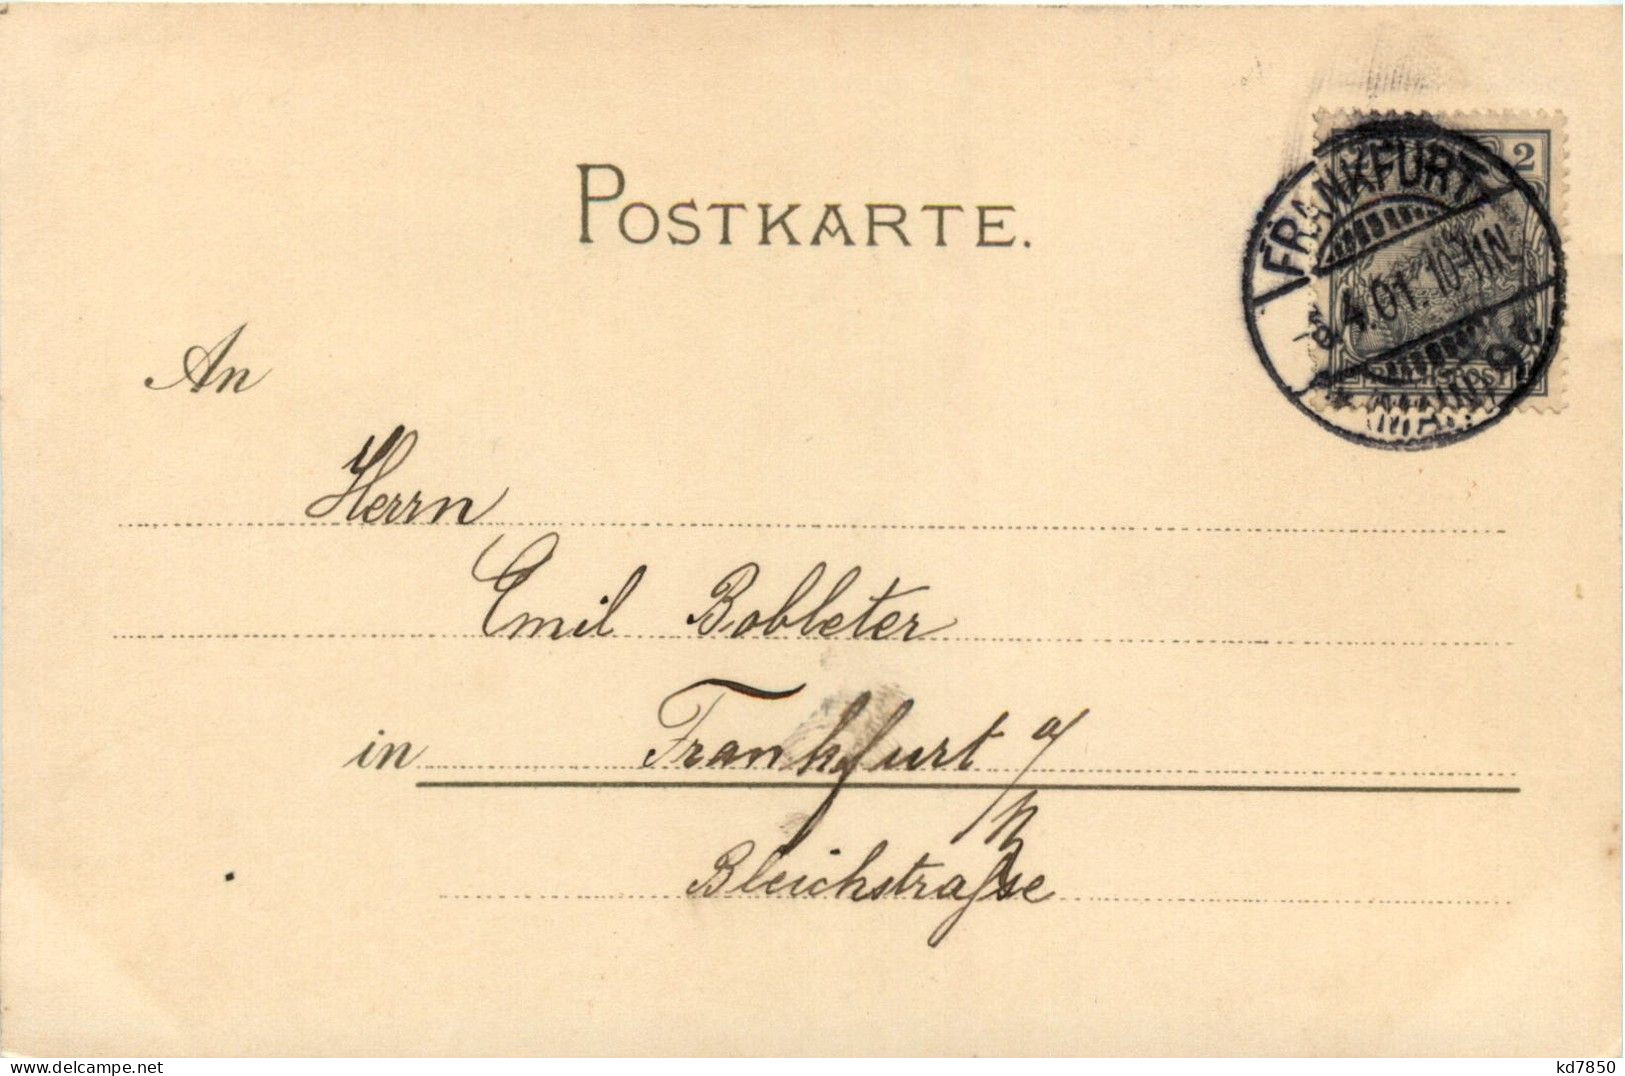 POSTKARTE.
2
FRANKFURT
4.01. 10-11N.
(MAIN) 9
An
Herrn
Emil Bobleter
in Frankfurt a/M
Bleichstraße
kd7850